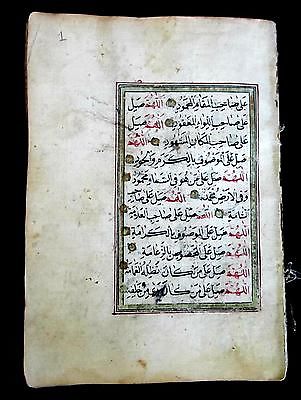 1
على صاحب المقام المحمود اللهم صل
على صاحب اللواء المعقود اللهم صل
على صاحب المكان المشهود اللهم
صل على الموصوف بالكرم والجود
اللهم صل على من هو في السماء محمود
وفي الارض محمد اللهم صل على صاحب
الشامة اللهم صل على صاحب العلامة
اللهم صل على الموصوف بالكرامة
اللهم صل على المخصوص بالزعامة
اللهم صل على من كان تظله الغمامة
اللهم صل على من كان يرى من خلفه